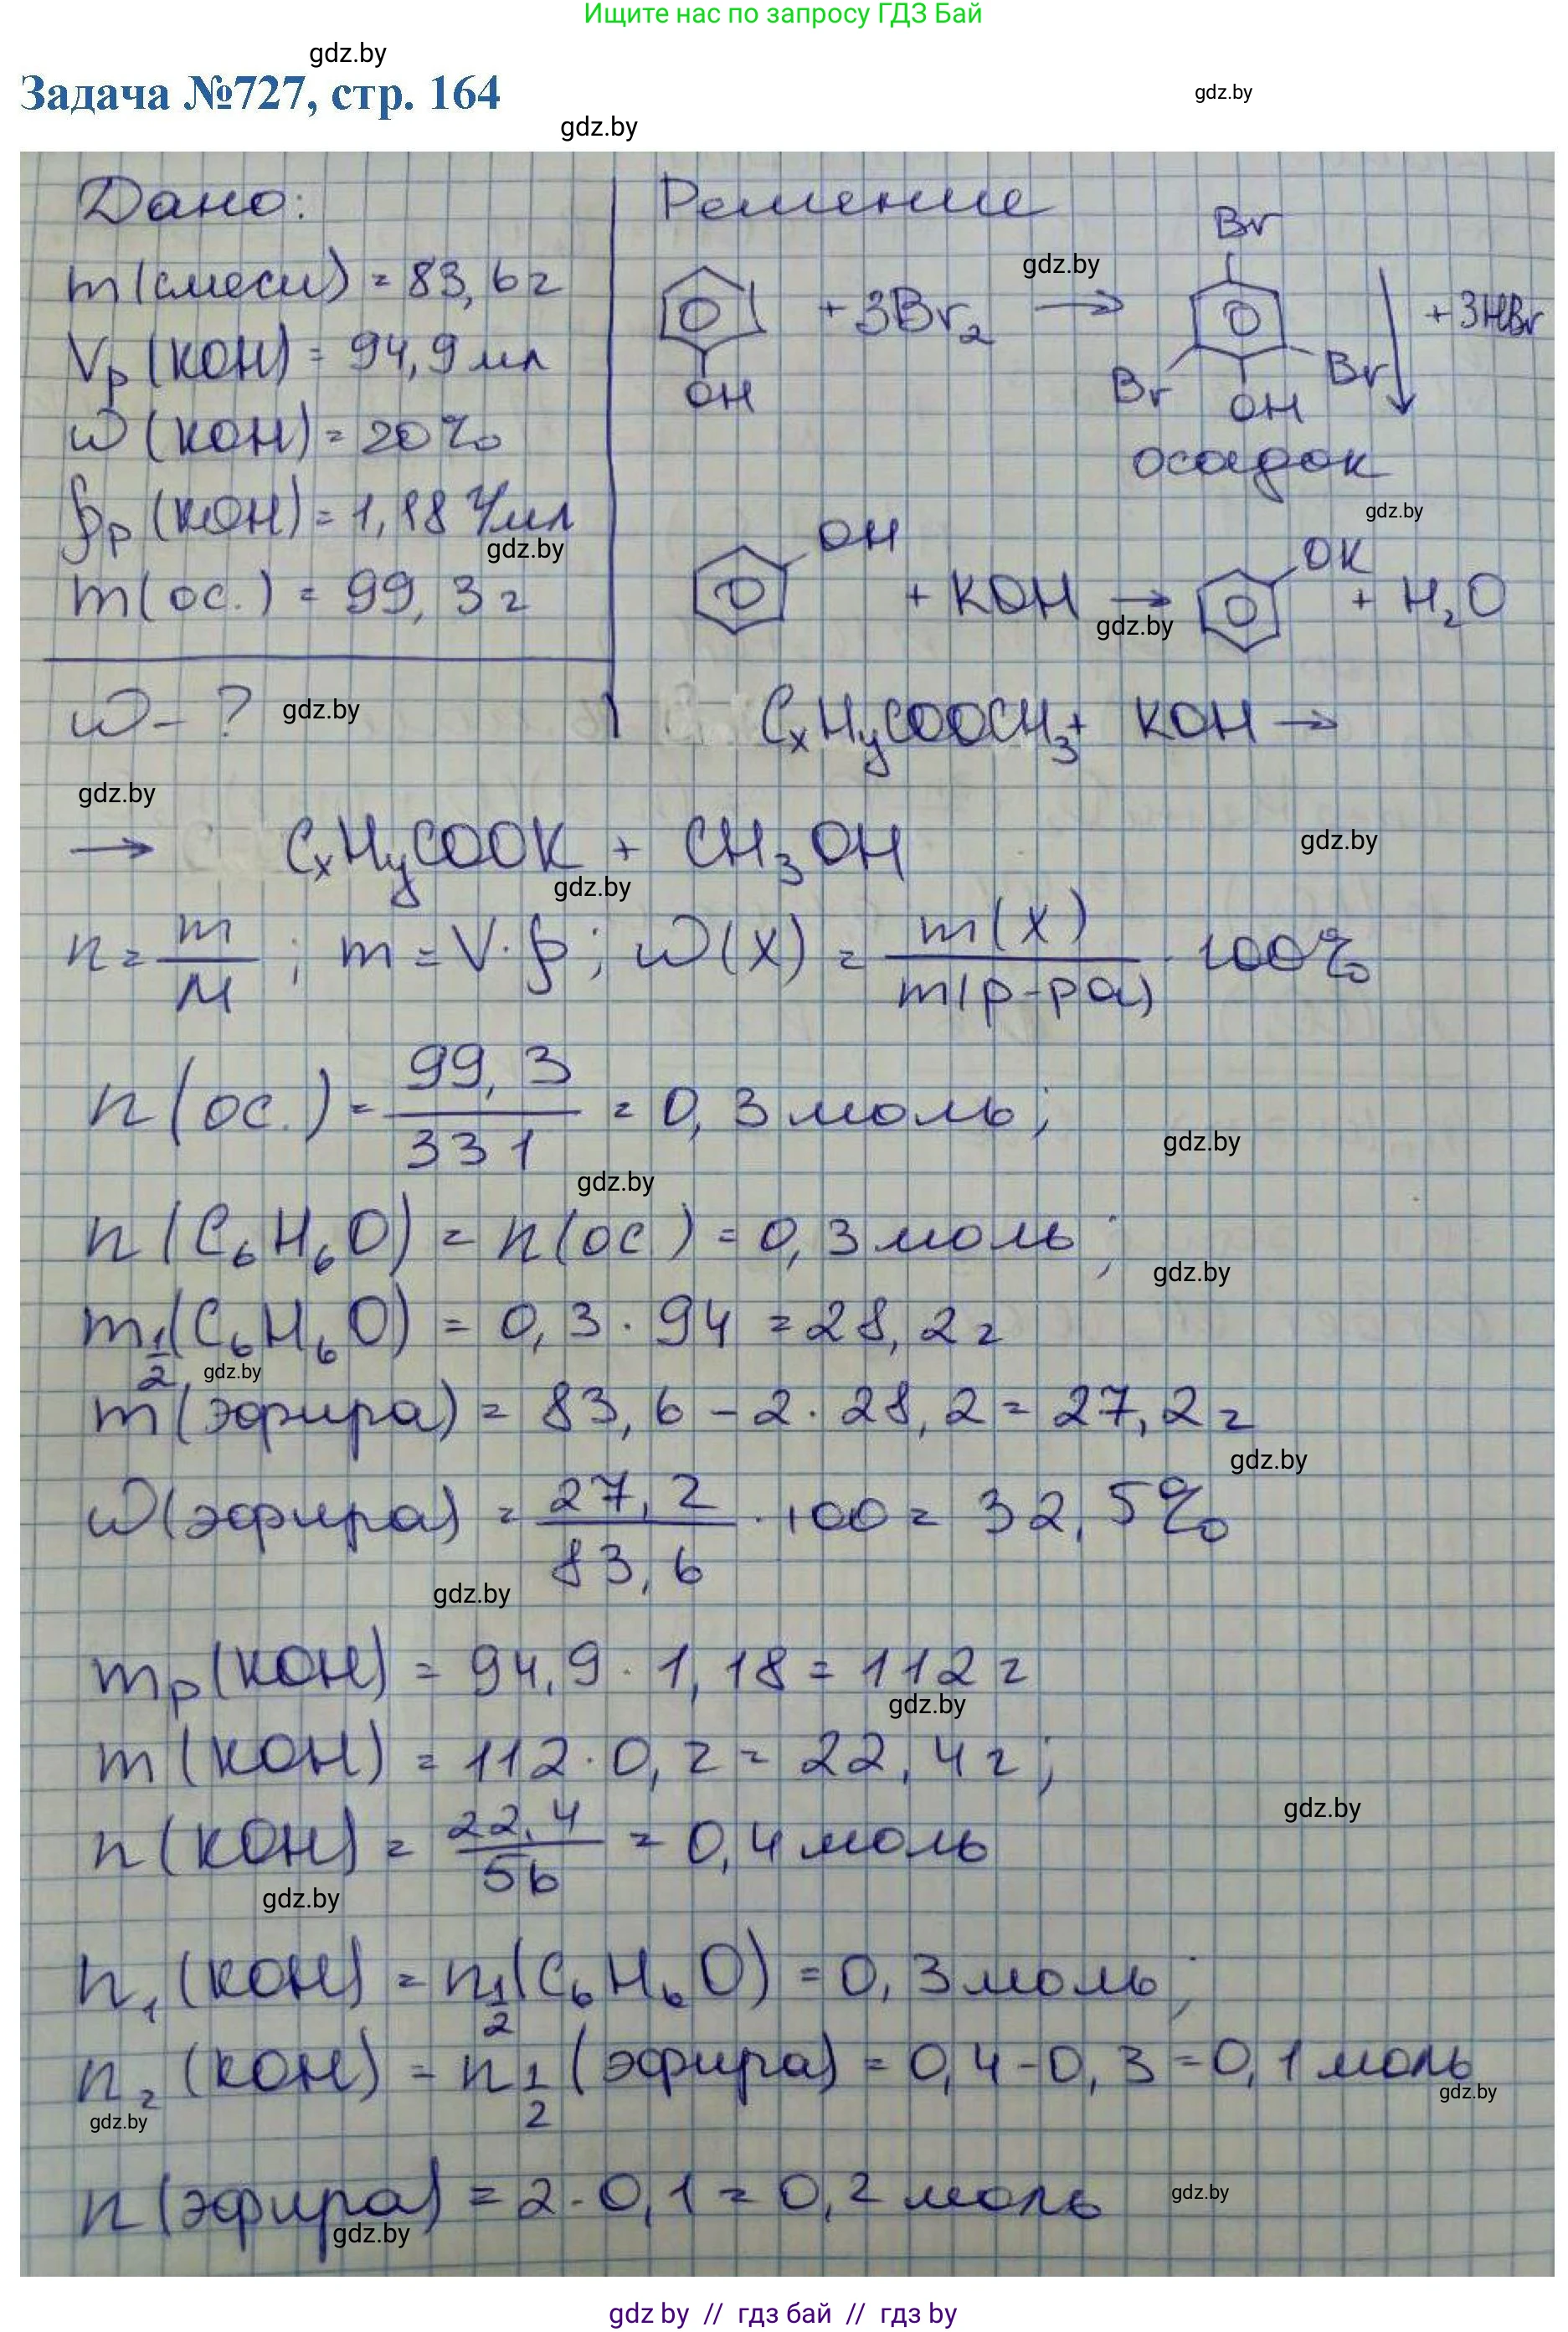 Ищите нас по запросу ГДЗ Бай
gdz.by
Задача №727, стр. 164
gdz.by
gdz.by
Дано:
Решение
m(смеси) = 83,6 г
Vр(KOH) = 94,9 мл
ω(KOH) = 20%
ρр(KOH) = 1,18 г/мл
m(ос.) = 99,3 г
ω - ?
OH + 3Br₂ → Br Br OH Br ↓ + 3HBr
gdz.by
осадок
gdz.by
gdz.by
OH + KOH → OK + H₂O
gdz.by
gdz.by
CₓHᵧCOOCH₃ + KOH →
gdz.by
gdz.by
→ CₓHᵧCOOK + CH₃OH
gdz.by
n = m/M ; m = V·ρ; ω(X) = m(X)/m(р-ра) · 100%
n(ос.) = 99,3/331 = 0,3 моль;
gdz.by
gdz.by
n(C₆H₆O) = n(ос) = 0,3 моль;
gdz.by
m½(C₆H₆O) = 0,3 · 94 = 28,2 г
gdz.by
m(эфира) = 83,6 - 2·28,2 = 27,2 г
gdz.by
ω(эфира) = 27,2/83,6 · 100 = 32,5%
gdz.by
mр(KOH) = 94,9 · 1,18 = 112 г
gdz.by
m(KOH) = 112·0,2 = 22,4 г;
gdz.by
n(KOH) = 22,4/56 = 0,4 моль
gdz.by
n₁(KOH) = n½(C₆H₆O) = 0,3 моль;
n₂(KOH) = n½(эфира) = 0,4-0,3 = 0,1 моль
gdz.by
gdz.by
n(эфира) = 2·0,1 = 0,2 моль
gdz.by
gdz.by
gdz by // гдз бай // гдз by